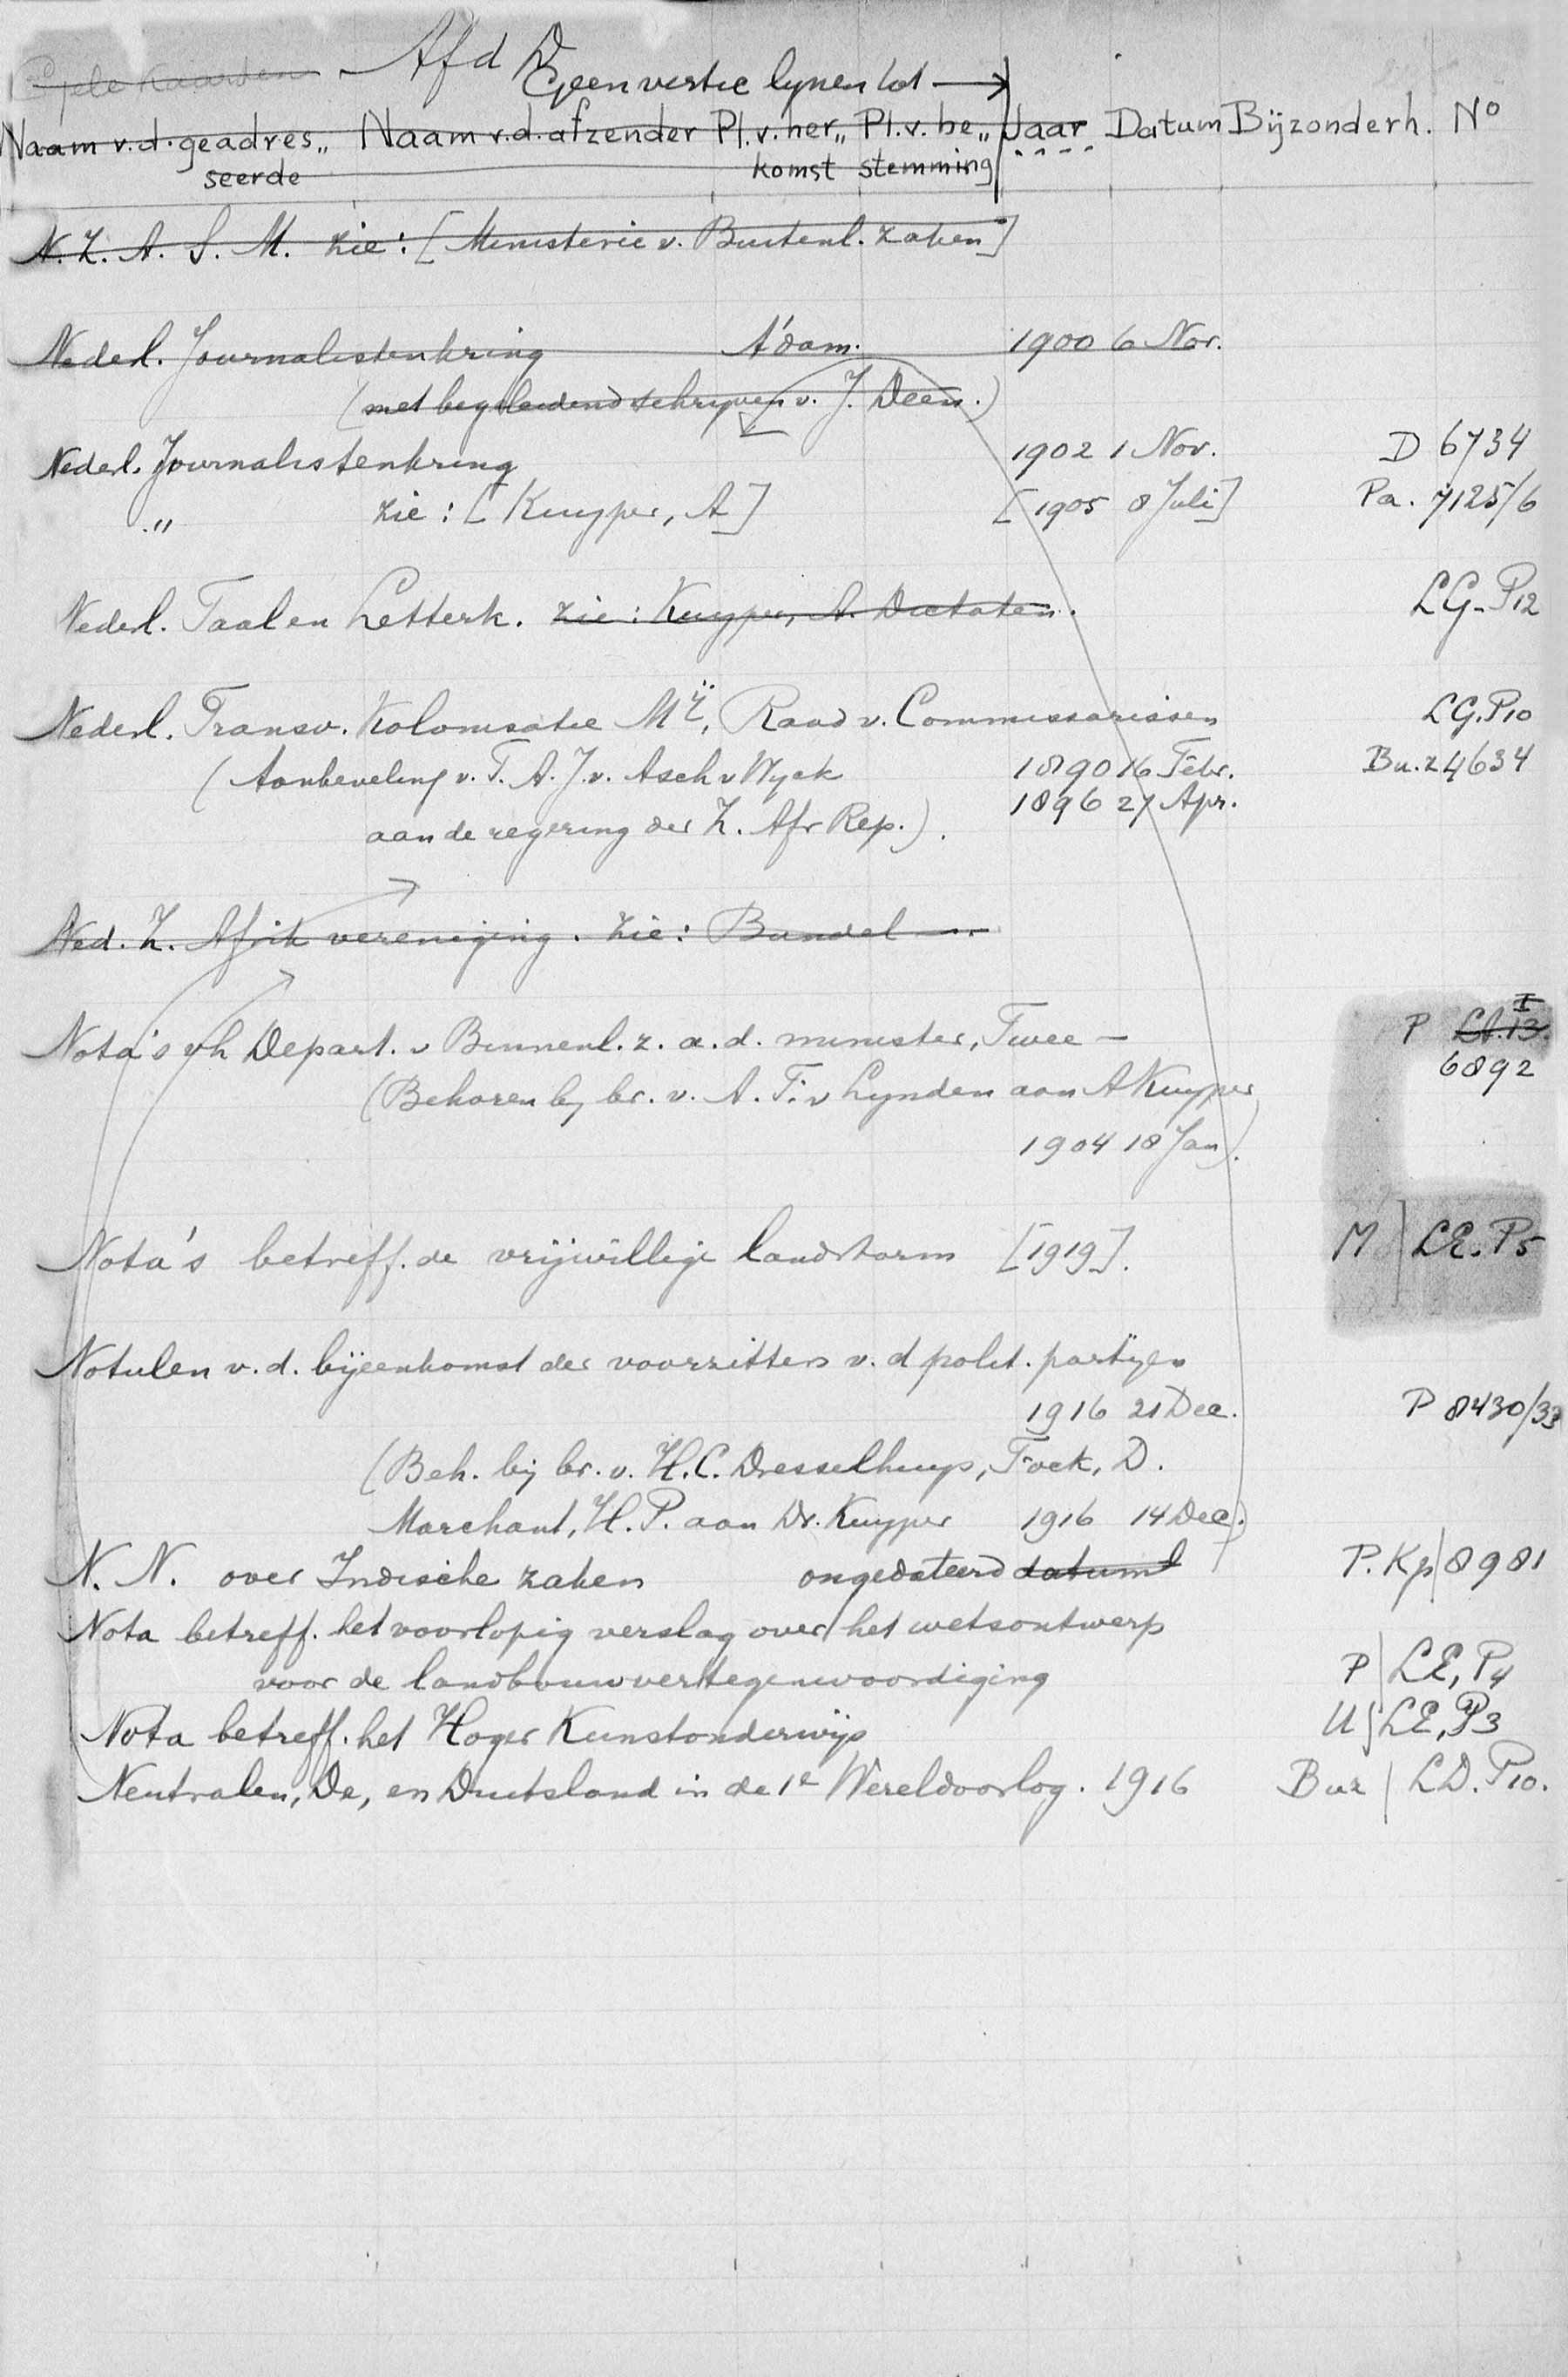 Gele Kaarten - Afd D
Geen vertic lynen tot →
Naam v.d. geadres„ Naam v.d. afzender Pl. v. her„ Pl. v. be„ Jaar Datum Bijzonderh. No
seerde komst stemming
N. Z. A. S. M. zie: [Ministerie v. Buitenl. zaken]
Nederl. Journalistenkring A'dam. 1900 6 Nov.
(met begeleidend schryven v. J. Deen.)
Nederl. Journalistenkring 1902 1 Nov. D 6734
" zie: [Kuyper, A] [1905 8 Juli] Pa. 7125/6
Nederl. Taal en Letterk. zie: Kuyper, A. Dictaten. LG-P12
Nederl. Transv. Kolonisatie Mij, Raad v. Commissarissen LG.P10
(Aanbeveling v. T. A. J. v. Asch v Wyck 1890 16 Febr. Bu.z 4634
1896 27 Apr.
aan de regering der Z. Afr Rep.).
Ned. Z. Afrik vereniging. zie: Bundel
Nota's v h Depart. v Binnenl. z. a. d. minister, Twee - P LA.13. I
6892
(Behoren bij br. v. A. F. v Lynden aan A Kuyper
1904 18 Jan).
Nota's betreff. de vrijwillige landstorm [1919]. M LE. P5
Notulen v. d. bijeenkomst der voorzitters v. d polit. partijen
1916 21 Dec. P 8430/33
(Beh. bij br. v. H.C. Dresselhuys, Fock, D.
Marchant, H. P. aan Dr. Kuyper 1916 14 Dec.)
N. N. over Indische zaken ongedateerd datum P. Kp 8981
Nota betreff. het voorlopig verslag over het wetsontwerp
voor de landbouwvertegenwoordiging P LE, P4
Nota betreff. het Hoger Kunstonderwijs U LE, P3
Neutralen, De, en Duitsland in de 1e Wereldoorlog. 1916 Buz LD. P10.